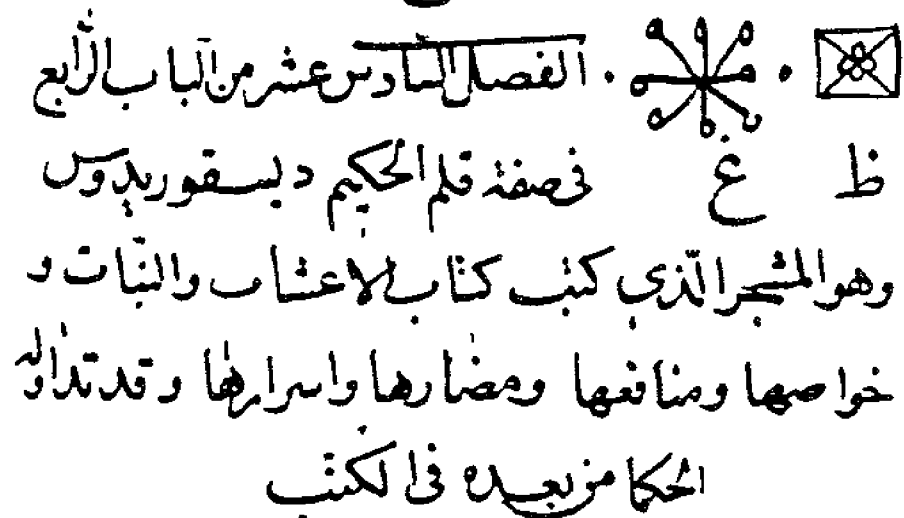 الفصل السادس عشر من الباب الرابع
ظ غ في صفة قلم الحكيم ديسقوريدوس
وهو المشجر الذي كتب كتاب الاعشاب والنبات و
خواصها ومنافعها ومضارها واسرارها وقد تداوله
الحكما من بعده في الكتب